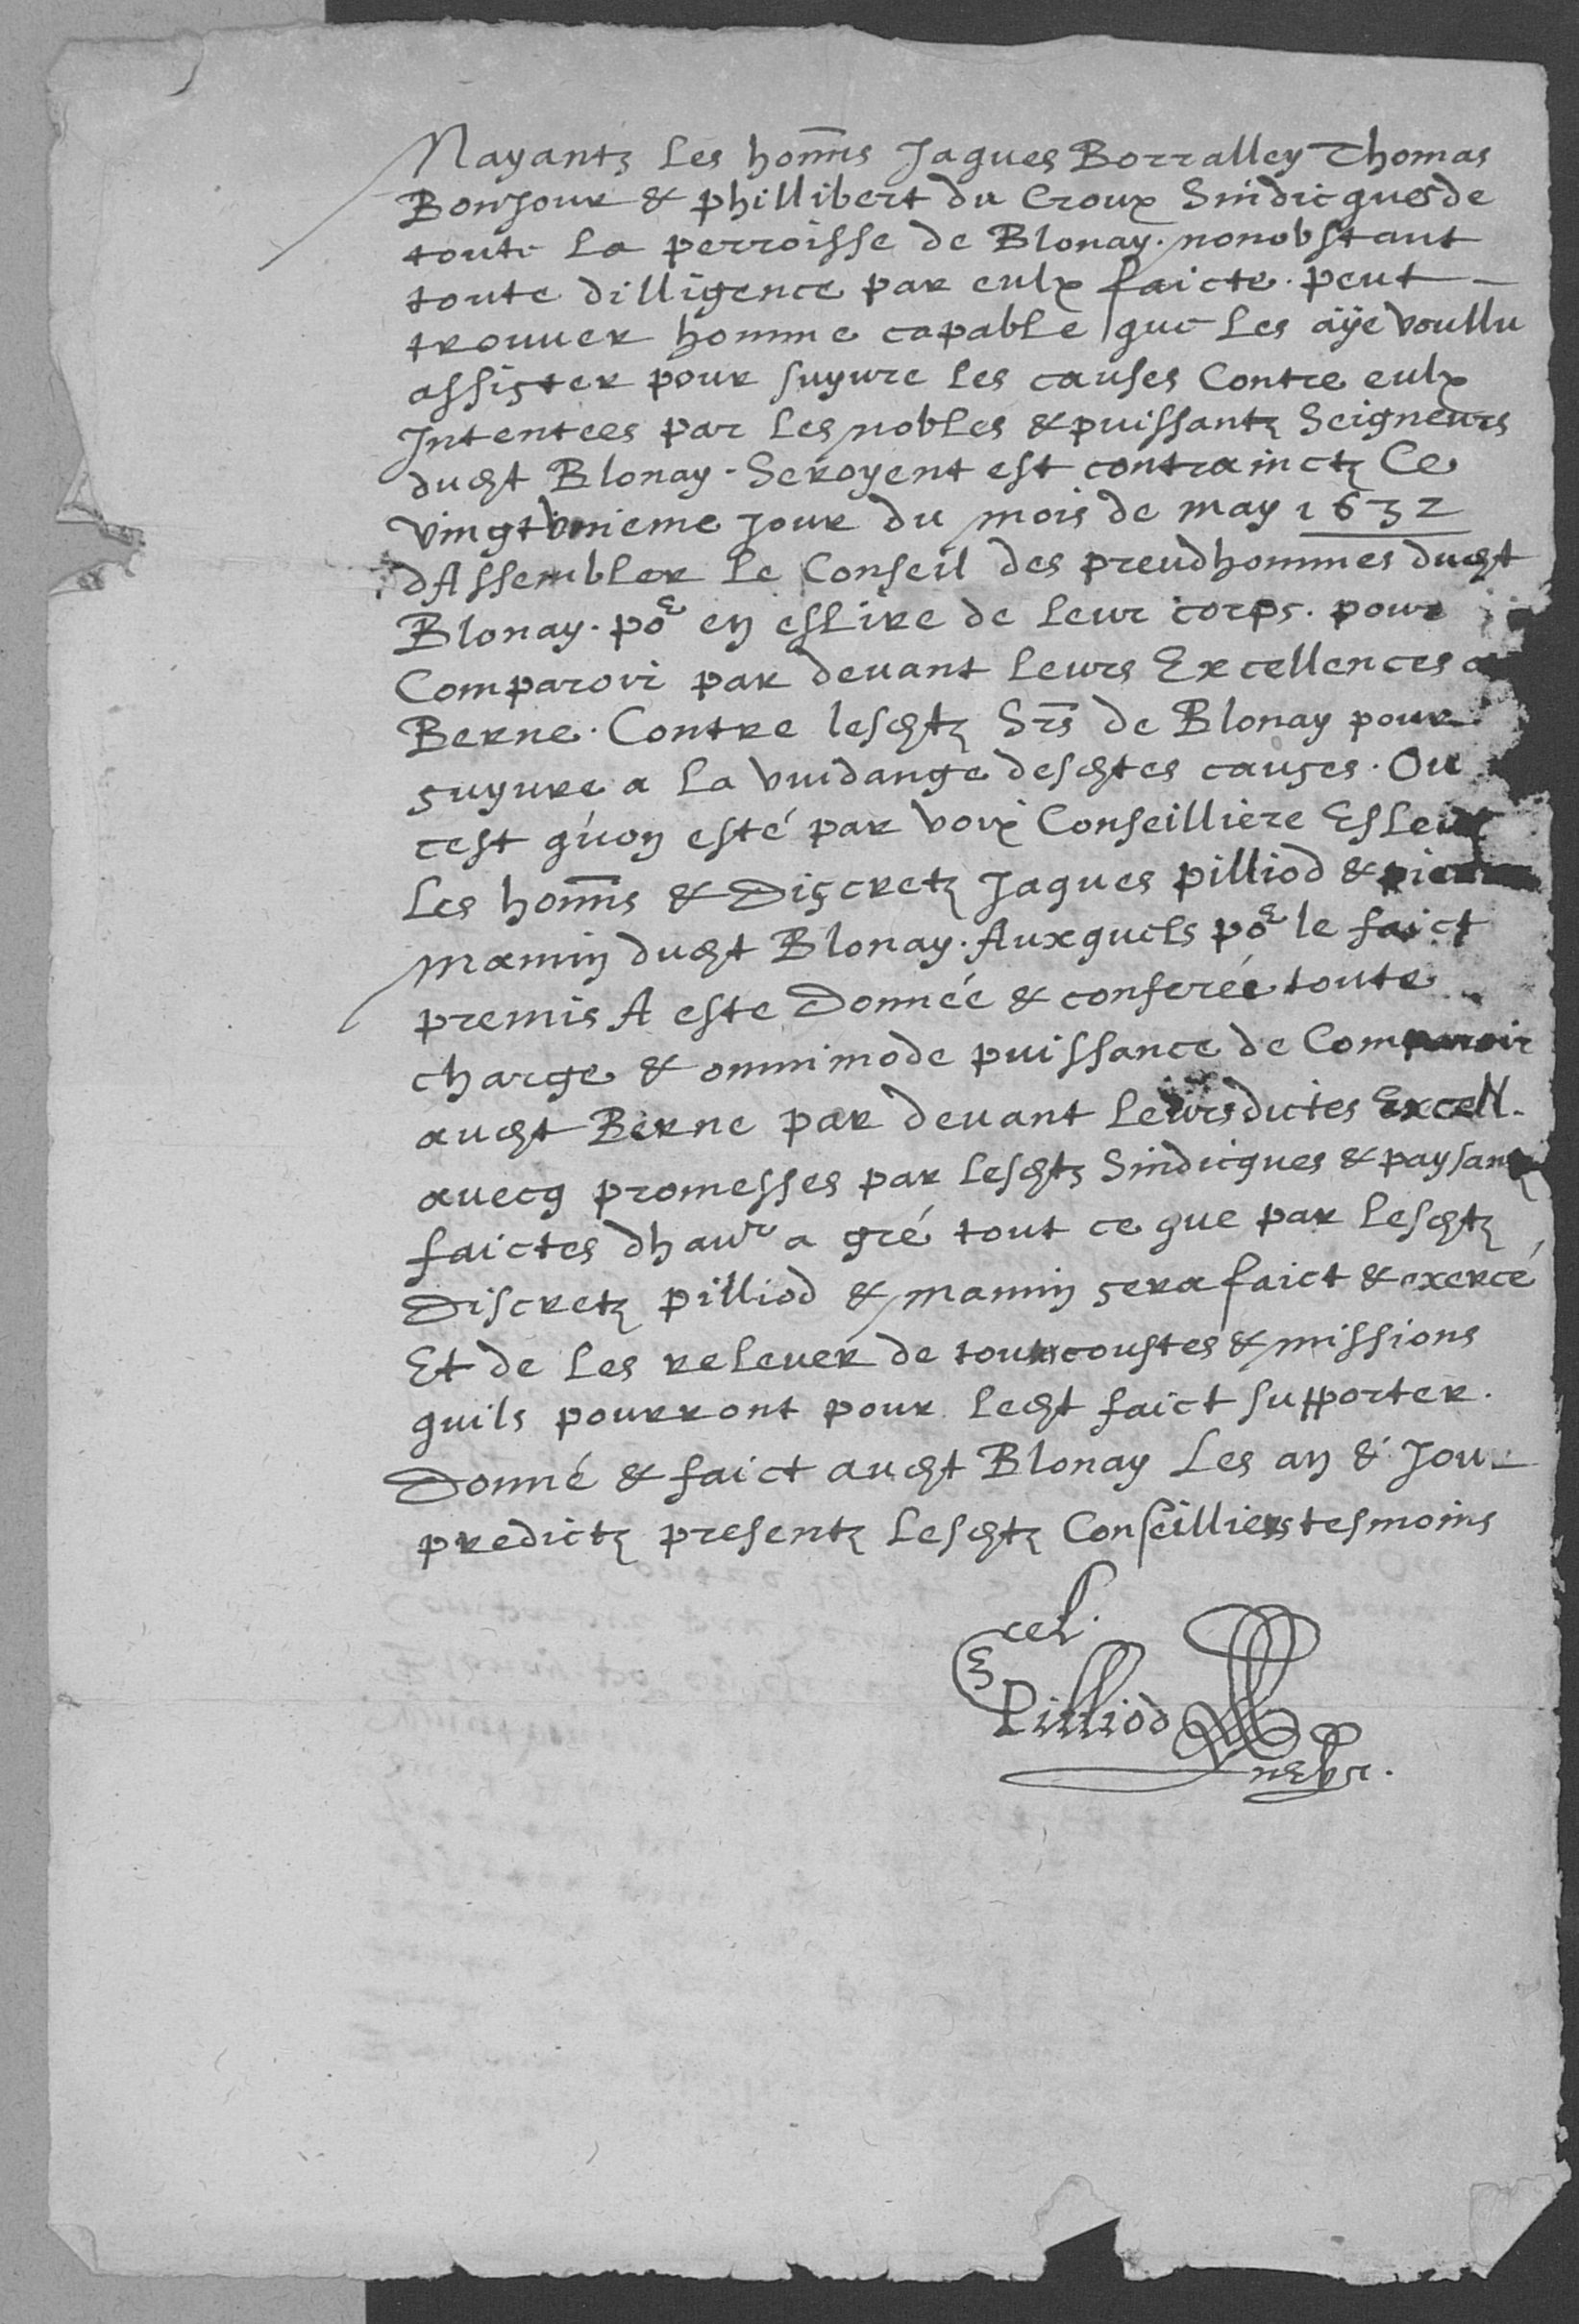 Nayants les honn̄s Jaques Borralley Thomas
Bonjour & phillibert du Croux Sindicques de
toute la perroisse de Blonay. nonobstant
toute dilligence par eulx faicte. peut
trouuer homme capable que les aÿe voullu
assister pour suyure les causes Contre eulx
Intentees par les nobles & puissantz Seigneurs
dudt Blonay. Seroyent est contrainctz Ce
vingtvnieme jour du mois de may 1632
dAssembler le Conseil des preudhommes dudt
Blonay. por en eslire de leur corps. pour
Comparoir par deuant leurs Excellences a
Berne. Contre lesdtz Srs de Blonay pour
suyure a la vuidange desdtes causes. Ou
cest quon esté par voix Conseilliere Esleuz
Les honn̄s & Discretz Jaques pilliod &
mamin dudt Blonay. Auxquels por le faict
premis A este Donnée & conferée toute
charge & omnimode puissance de Comparoir
audt Berne par deuant leursdictes Excell.
auecq promesses par lesdts Sindicques & paysans
faictes dhauʳ a gré tout ce que par lesdtz
Discretz pilliod & mamin sera faict & exercé
Et de les releuer de tous coustes & missions
quils pourront pour ledt faict supporter.
Donné & faict audt Blonay Les an & Jour
predictz presentz lesdtz Conseilliers tesmoins
Pilliod